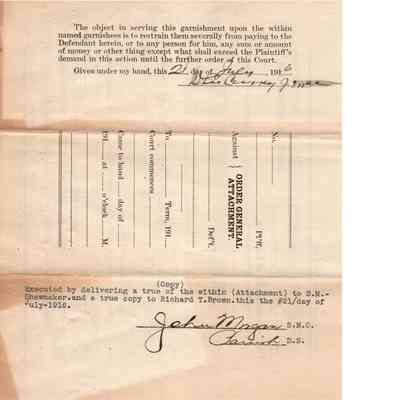 The object in serving this garnishment upon the within
named garnishees is to restrain them severally from paying to the
Defendant herein, or to any person for him, any sum or amount
of money or other thing except what shall exceed the Plaintiff's
demand in this action until the further order of this Court.
Given under my hand, this 21 day of July 1916
No.
Pl'ff,
ORDER GENERAL
ATTACHMENT.
Against
Def't.
To Term, 191
Court commences
Came to hand day of
191 at o'clock M.
(Copy)
Executed by delivering a true of the within (Attachment) to S.M.-
Shewmaker.and a true copy to Richard T.Brown.this the #21/day of
July-1916.
John Morgan S.M.C.
Parrish D.S.